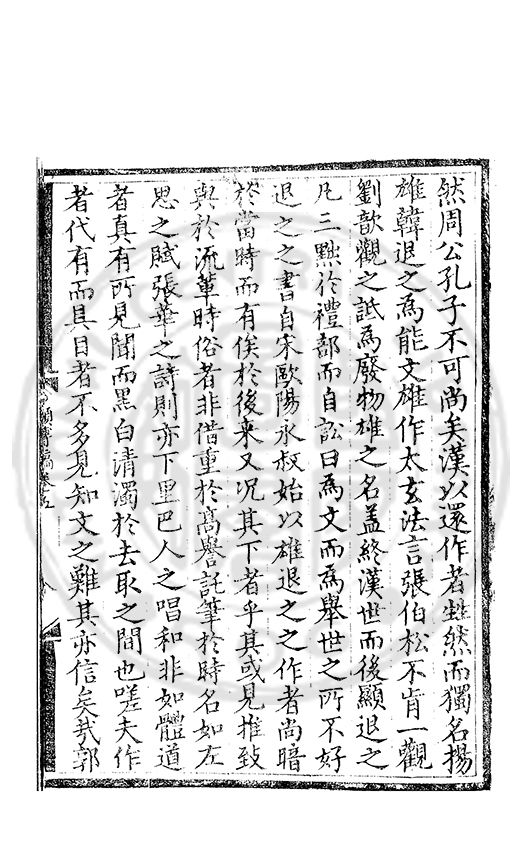 然周公孔子不可尚矣漢以還作者蝟然而獨名揚
雄韓退之為能文雄作太玄法言張伯松不肯一觀
劉歆觀之詆為廢物雄之名盖終漢世而後顯退之
凡三黜於禮部而自訟曰為文而為舉世之所不好
退之之書自宋歐陽永叔始以雄退之之作者尚暗
於當時而有俟於後来又况其下者乎其或見推致
與於流輩時俗者非借重於高譽託筆於時名如左
思之賦張華之詩則亦下里巴人之唱和非如體道
者真有所見聞而黑白清濁於去取之間也嗟夫作
者代有而具目者不多見知文之難其亦信矣哉郭